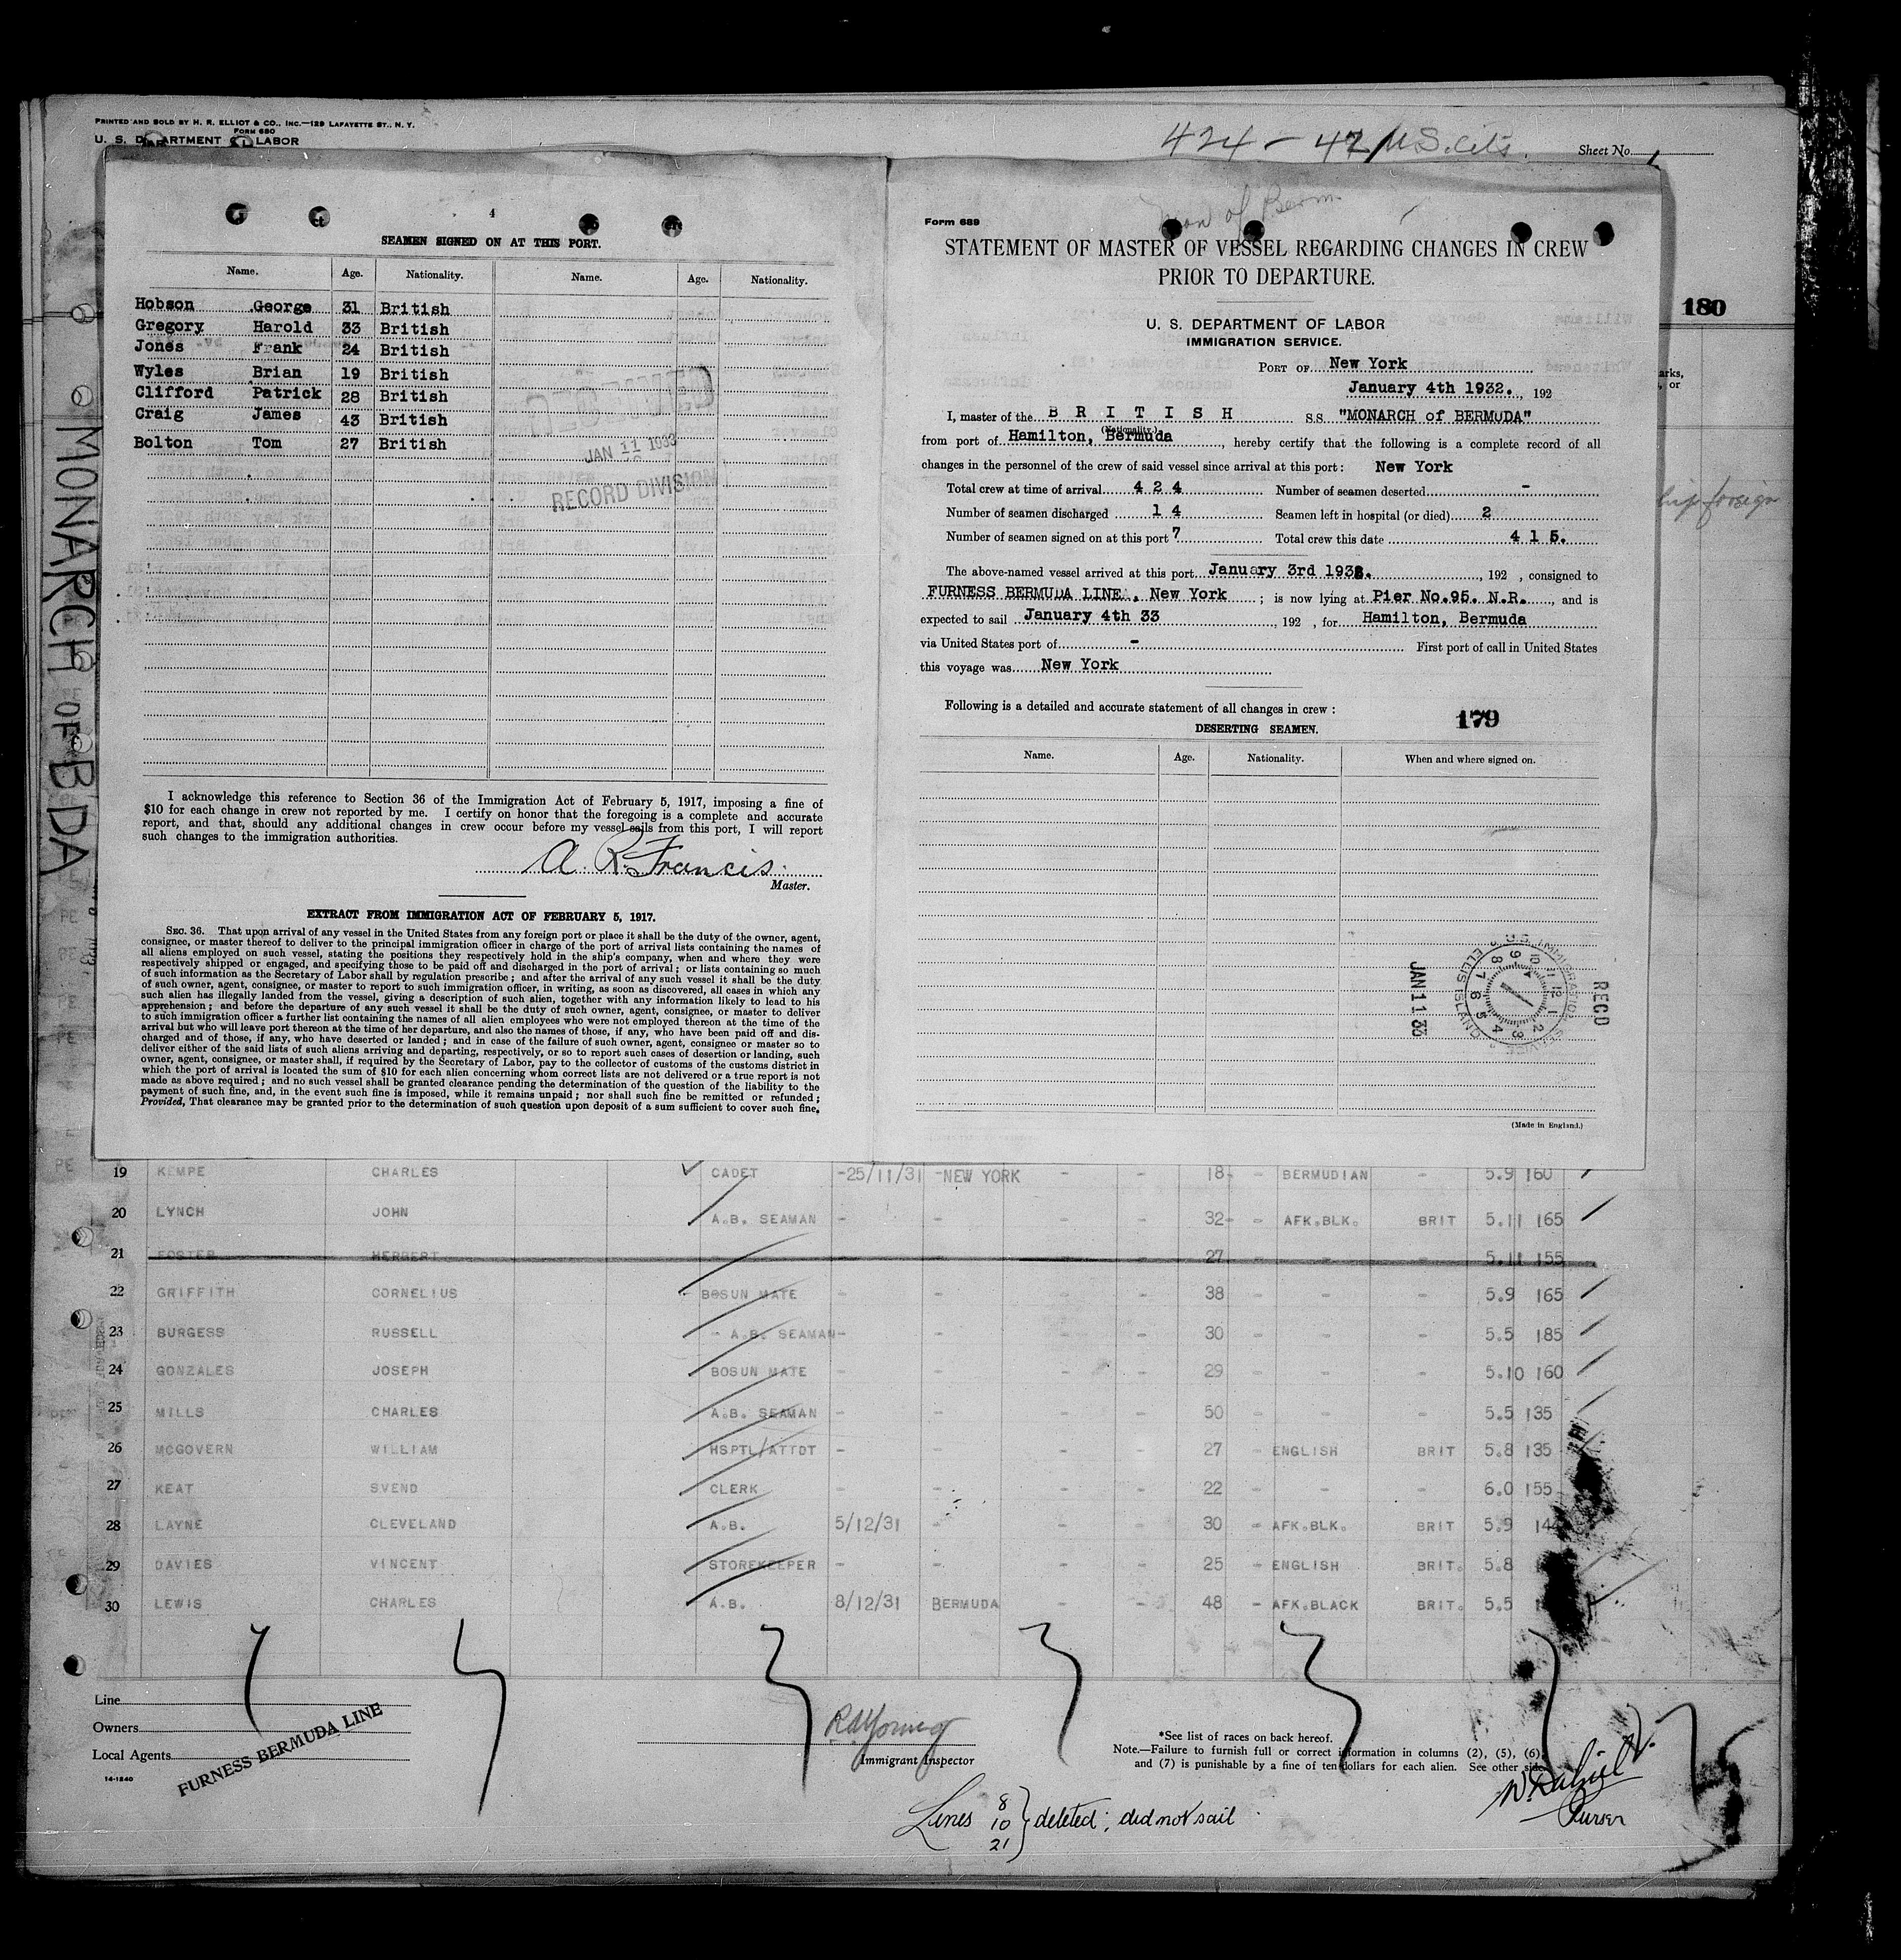 PRINTED AND SOLD BY H. R. ELLIOT & CO., INC.—129 LAFAYETTE ST., N. Y.
FORM 680
U. S. DEPARTMENT OF LABOR
424 - 42 U.S. Cits.
Sheet No. 1
180
MONARCH OF BDA
4
SEAMEN SIGNED ON AT THIS PORT.
Name. Age. Nationality. Name. Age. Nationality.
Hobson George 31 British
Gregory Harold 33 British
Jones Frank 24 British
Wyles Brian 19 British
Clifford Patrick 28 British
Craig James 43 British
Bolton Tom 27 British
JAN 11 1933
RECORD DIVISION
I acknowledge this reference to Section 36 of the Immigration Act of February 5, 1917, imposing a fine of
$10 for each change in crew not reported by me. I certify on honor that the foregoing is a complete and accurate
report, and that, should any additional changes in crew occur before my vessel sails from this port, I will report
such changes to the immigration authorities.
A. R. Francis.
Master.
EXTRACT FROM IMMIGRATION ACT OF FEBRUARY 5, 1917.
SEC. 36. That upon arrival of any vessel in the United States from any foreign port or place it shall be the duty of the owner, agent,
consignee, or master thereof to deliver to the principal immigration officer in charge of the port of arrival lists containing the names of
all aliens employed on such vessel, stating the positions they respectively hold in the ship's company, when and where they were
respectively shipped or engaged, and specifying those to be paid off and discharged in the port of arrival; or lists containing so much
of such information as the Secretary of Labor shall by regulation prescribe; and after the arrival of any such vessel it shall be the duty
of such owner, agent, consignee, or master to report to such immigration officer, in writing, as soon as discovered, all cases in which any
such alien has illegally landed from the vessel, giving a description of such alien, together with any information likely to lead to his
apprehension; and before the departure of any such vessel it shall be the duty of such owner, agent, consignee, or master to deliver
to such immigration officer a further list containing the names of all alien employees who were not employed thereon at the time of the
arrival but who will leave port thereon at the time of her departure, and also the names of those, if any, who have been paid off and dis-
charged and of those, if any, who have deserted or landed; and in case of the failure of such owner, agent, consignee or master so to
deliver either of the said lists of such aliens arriving and departing, respectively, or so to report such cases of desertion or landing, such
owner, agent, consignee, or master shall, if required by the Secretary of Labor, pay to the collector of customs of the customs district in
which the port of arrival is located the sum of $10 for each alien concerning whom correct lists are not delivered or a true report is not
made as above required; and no such vessel shall be granted clearance pending the determination of the question of the liability to the
payment of such fine, and, in the event such fine is imposed, while it remains unpaid; nor shall such fine be remitted or refunded;
Provided, That clearance may be granted prior to the determination of such question upon deposit of a sum sufficient to cover such fine.
Mon of Berm.
Form 689
STATEMENT OF MASTER OF VESSEL REGARDING CHANGES IN CREW
PRIOR TO DEPARTURE.
U. S. DEPARTMENT OF LABOR
IMMIGRATION SERVICE.
PORT OF New York
January 4th 1932. , 192
I, master of the B R I T I S H S.S. "MONARCH of BERMUDA"
(Nationality.)
from port of Hamilton, Bermuda , hereby certify that the following is a complete record of all
changes in the personnel of the crew of said vessel since arrival at this port: New York
Total crew at time of arrival 4 2 4 Number of seamen deserted -
Number of seamen discharged 1 4 Seamen left in hospital (or died) 2
Number of seamen signed on at this port 7 Total crew this date 4 1 5.
The above-named vessel arrived at this port January 3rd 1933. , 192 , consigned to
FURNESS BERMUDA LINE, New York ; is now lying at Pier No.95. N.R. , and is
expected to sail January 4th 33 , 192 , for Hamilton, Bermuda
via United States port of - First port of call in United States
this voyage was New York
Following is a detailed and accurate statement of all changes in crew :
179
DESERTING SEAMEN.
Name. Age. Nationality. When and where signed on.
JAN 11 33
U.S. IMMIGRATION SERVICE ELLIS ISLAND
RECD
(Made in England.)
arks,
, or
hip foreign
19 KEMPE CHARLES CADET -25/11/31 -NEW YORK - - 18- - BERMUDIAN - 5.9 160
20 LYNCH JOHN A.B. SEAMAN - - - - 32- - AFK.BLK. BRIT 5.11 165
21 FOSTER HERBERT 27 - - - 5.11 155
22 GRIFFITH CORNELIUS BOSUN MATE - - - - 38 - - - 5.9 165
23 BURGESS RUSSELL - A.B. SEAMAN- - - - 30 - - - 5.5 185
24 GONZALES JOSEPH BOSUN MATE - - - - 29 - - - 5.10 160
25 MILLS CHARLES A.B. SEAMAN - - - - 50 - - - 5.5 135
26 MCGOVERN WILLIAM HSPTL/ATTDT - - - - 27 - ENGLISH BRIT 5.8 135
27 KEAT SVEND CLERK - - - - 22 - - - 6.0 155
28 LAYNE CLEVELAND A.B. 5/12/31 - - - 30 - AFK.BLK. BRIT 5.9
29 DAVIES VINCENT STOREKEEPER - - - - 25 - ENGLISH BRIT. 5.8
30 LEWIS CHARLES A.B. 8/12/31 BERMUDA - - 48 - AFK.BLACK BRIT. 5.5
Line
Owners
Local Agents
FURNESS BERMUDA LINE
14-1240
R. A. Young
Immigrant Inspector
*See list of races on back hereof.
Note.—Failure to furnish full or correct information in columns (2), (5), (6),
and (7) is punishable by a fine of ten dollars for each alien. See other side.
Purser
Lines 8 10 21 } deleted; did not sail